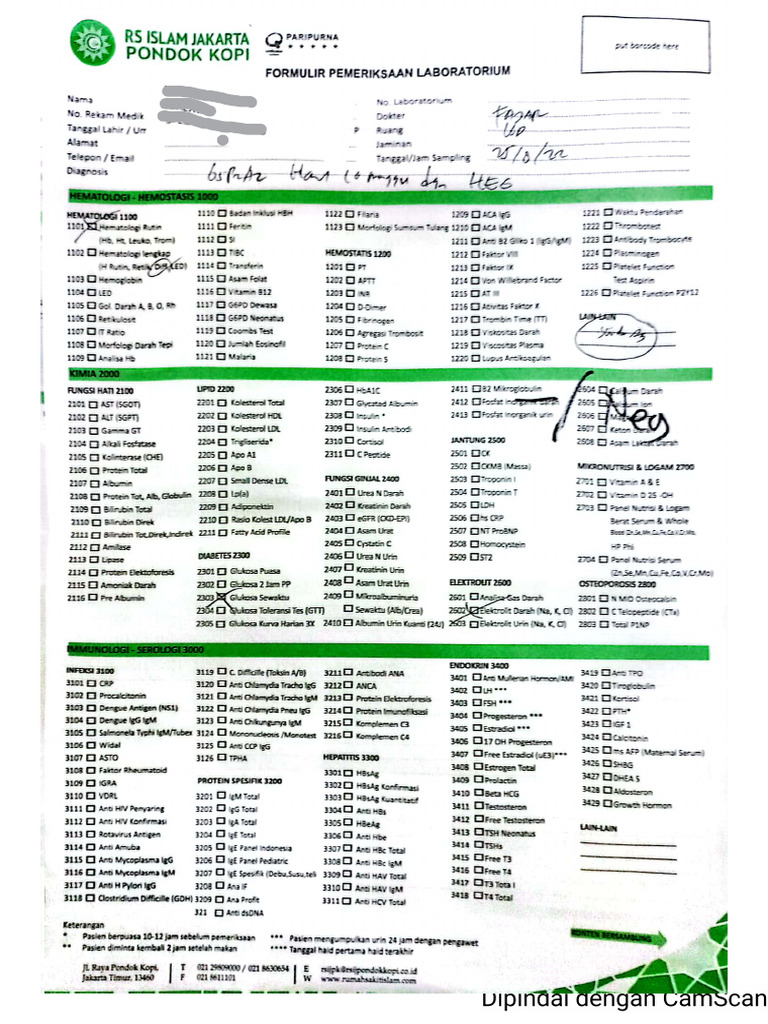 RS ISLAM JAKARTA
PONDOK KOPI
PARIPURNA
put barcode here
FORMULIR PEMERIKSAAN LABORATORIUM
Nama
No. Rekam Medik
Tanggal Lahir / Um
P
Alamat
Telepon / Email
Diagnosis
G5P2A2 Hamil 10 minggu dgn HEG
No. Laboratorium
Dokter
Fajar
Ruang
Jaminan
Tanggal/Jam Sampling
HEMATOLOGI - HEMOSTASIS 1000
HEMATOLOGI 1100
1101 Hematologi Rutin
(Hb, Ht, Leuko, Trom)
1102 Hematologi lengkap
(H Rutin, Retik, Diff, LED)
1103 Hemoglobin
1104 LED
1105 Gol. Darah A, B, O, Rh
1106 Retikulosit
1107 IT Ratio
1108 Morfologi Darah Tepi
1109 Analisa Hb
1110 Badan Inklusi HBH
1111 Feritin
1112 SI
1113 TIBC
1114 Transferin
1115 Asam Folat
1116 Vitamin B12
1117 G6PD Dewasa
1118 G6PD Neonatus
1119 Coombs Test
1120 Jumlah Eosinofil
1121 Malaria
1122 Filaria
1123 Morfologi Sumsum Tulang
HEMOSTATIS 1200
1201 PT
1202 APTT
1203 INR
1204 D-Dimer
1205 Fibrinogen
1206 Agregasi Trombosit
1207 Protein C
1208 Protein S
1209 ACA IgG
1210 ACA IgM
1211 Anti B2 Gliko 1 (IgG/IgM)
1212 Faktor VIII
1213 Faktor IX
1214 Von Willebrand Factor
1215 AT III
1216 Ativitas Faktor X
1217 Trombin Time (TT)
1218 Viskositas Darah
1219 Viscositas Plasma
1220 Lupus Antikoagulan
1221 Waktu Pendarahan
1222 Thrombotest
1223 Antibody Trombocyte
1224 Plasminogen
1225 Platelet Function
Test Aspirin
1226 Platelet Function P2Y12
LAIN-LAIN
KIMIA 2000
FUNGSI HATI 2100
2101 AST (SGOT)
2102 ALT (SGPT)
2103 Gamma GT
2104 Alkali Fosfatase
2105 Kolinterase (CHE)
2106 Protein Total
2107 Albumin
2108 Protein Tot, Alb, Globulin
2109 Bilirubin Total
2110 Bilirubin Direk
2111 Bilirubin Tot,Direk,Indirek
2112 Amilase
2113 Lipase
2114 Protein Elektoforesis
2115 Amoniak Darah
2116 Pre Albumin
LIPID 2200
2201 Kolesterol Total
2202 Kolesterol HDL
2203 Kolesterol LDL
2204 Trigliserida*
2205 Apo A1
2206 Apo B
2207 Small Dense LDL
2208 Lp(a)
2209 Adiponektin
2210 Rasio Kolest LDL/Apo B
2211 Fatty Acid Profile
DIABETES 2300
2301 Glukosa Puasa
2302 Glukosa 2 Jam PP
2303 Glukosa Sewaktu
2304 Glukosa Toleransi Tes (GTT)
2305 Glukosa Kurva Harian 3X
2306 HbA1C
2307 Glycated Albumin
2308 Insulin *
2309 Insulin Antibodi
2310 Cortisol
2311 C Peptide
FUNGSI GINJAL 2400
2401 Urea N Darah
2402 Kreatinin Darah
2403 eGFR (CKD-EPI)
2404 Asam Urat
2405 Cystatin C
2406 Urea N Urin
2407 Kreatinin Urin
2408 Asam Urat Urin
2409 Mikroalbuminuria
Sewaktu (Alb/Crea)
2410 Albumin Urin Kuanti (24J)
2411 B2 Mikroglobulin
2412 Fosfat Inorganik Darah
2413 Fosfat Inorganik urin
JANTUNG 2500
2501 CK
2502 CKMB (Massa)
2503 Troponin I
2504 Troponin T
2505 LDH
2506 hs CRP
2507 NT ProBNP
2508 Homocystein
2509 ST2
ELEKTROLIT 2600
2601 Analisa Gas Darah
2602 Elektrolit Darah (Na, K, Cl)
2603 Elektrolit Urin (Na, K, Cl)
2604 Calcium Darah
2605 Calcium Ion
2606
2607 Keton Darah
2608 Asam Laktat Darah
Neg
MIKRONUTRISI & LOGAM 2700
2701 Vitamin A & E
2702 Vitamin D 25 -OH
2703 Panel Nutrisi & Logam
Berat Serum & Whole
Blood (Zn,Se,Mn,Cu,Fe,Co,V,Cr,Mo,
HP Phi
2704 Panel Nutrisi Serum
(Zn,Se,Mn,Cu,Fe,Co,V,Cr,Mo)
OSTEOPOROSIS 2800
2801 N MID Osteocalsin
2802 C Telopeptide (CTx)
2803 Total P1NP
IMMUNOLOGI - SEROLOGI 3000
INFEKSI 3100
3101 CRP
3102 Procalcitonin
3103 Dengue Antigen (NS1)
3104 Dengue IgG IgM
3105 Salmonela Typhi IgM/Tubex
3106 Widal
3107 ASTO
3108 Faktor Rheumatoid
3109 IGRA
3110 VDRL
3111 Anti HIV Penyaring
3112 Anti HIV Konfirmasi
3113 Rotavirus Antigen
3114 Anti Amuba
3115 Anti Mycoplasma IgG
3116 Anti Mycoplasma IgM
3117 Anti H Pylori IgG
3118 Clostridium Difficille (GDH)
3119 C. Difficille (Toksin A/B)
3120 Anti Chlamydia Tracho IgG
3121 Anti Chlamydia Tracho IgM
3122 Anti Chlamydia Pneu IgG
3123 Anti Chikungunya IgM
3124 Mononucleosis /Monotest
3125 Anti CCP IgG
3126 TPHA
PROTEIN SPESIFIK 3200
3201 IgM Total
3202 IgG Total
3203 IgA Total
3204 IgE Total
3205 IgE Panel Indonesia
3206 IgE Panel Pediatric
3207 IgE Spesifik (Debu,Susu,telu
3208 Ana IF
3209 Ana Profile
321 Anti dsDNA
3211 Antibodi ANA
3212 ANCA
3213 Protein Elektroforesis
3214 Protein Imunofiksasi
3215 Komplemen C3
3216 Komplemen C4
HEPATITIS 3300
3301 HBsAg
3302 HBsAg Konfirmasi
3303 HBsAg Kuantitatif
3304 Anti HBs
3305 HBeAg
3306 Anti Hbe
3307 Anti HBc Total
3308 Anti HBc IgM
3309 Anti HAV Total
3310 Anti HAV IgM
3311 Anti HCV Total
ENDOKRIN 3400
3401 Anti Mullerian Hormon/AMH
3402 LH ***
3403 FSH ***
3404 Progesteron ***
3405 Estradiol ***
3406 17 OH Progesteron
3407 Free Estradiol (uE3)***
3408 Estrogen Total
3409 Prolactin
3410 Beta HCG
3411 Testosteron
3412 Free Testosteron
3413 TSH Neonatus
3414 TSHs
3415 Free T3
3416 Free T4
3417 T3 Total
3418 T4 Total
3419 Anti TPO
3420 Tiroglobulin
3421 Kortisol
3422 PTH*
3423 IGF 1
3424 Calcitonin
3425 ms AFP (Maternal Serum)
3426 SHBG
3427 DHEA S
3428 Aldosteron
3429 Growth Hormon
LAIN-LAIN
Keterangan
* Pasien berpuasa 10-12 jam sebelum pemeriksaan
** Pasien diminta kembali 2 jam setelah makan
*** Pasien mengumpulkan urin 24 jam dengan pengawet
**** Tanggal haid pertama haid terakhir
KONTEN BERSAMBUNG
Jl. Raya Pondok Kopi,
Jakarta Timur, 13460
T 021 29809000 / 021 8630654
F 021 8611101
E rsijpk@rsijpondokkopi.co.id
W www.rumahsakitislam.com
Dipindai dengan CamScan